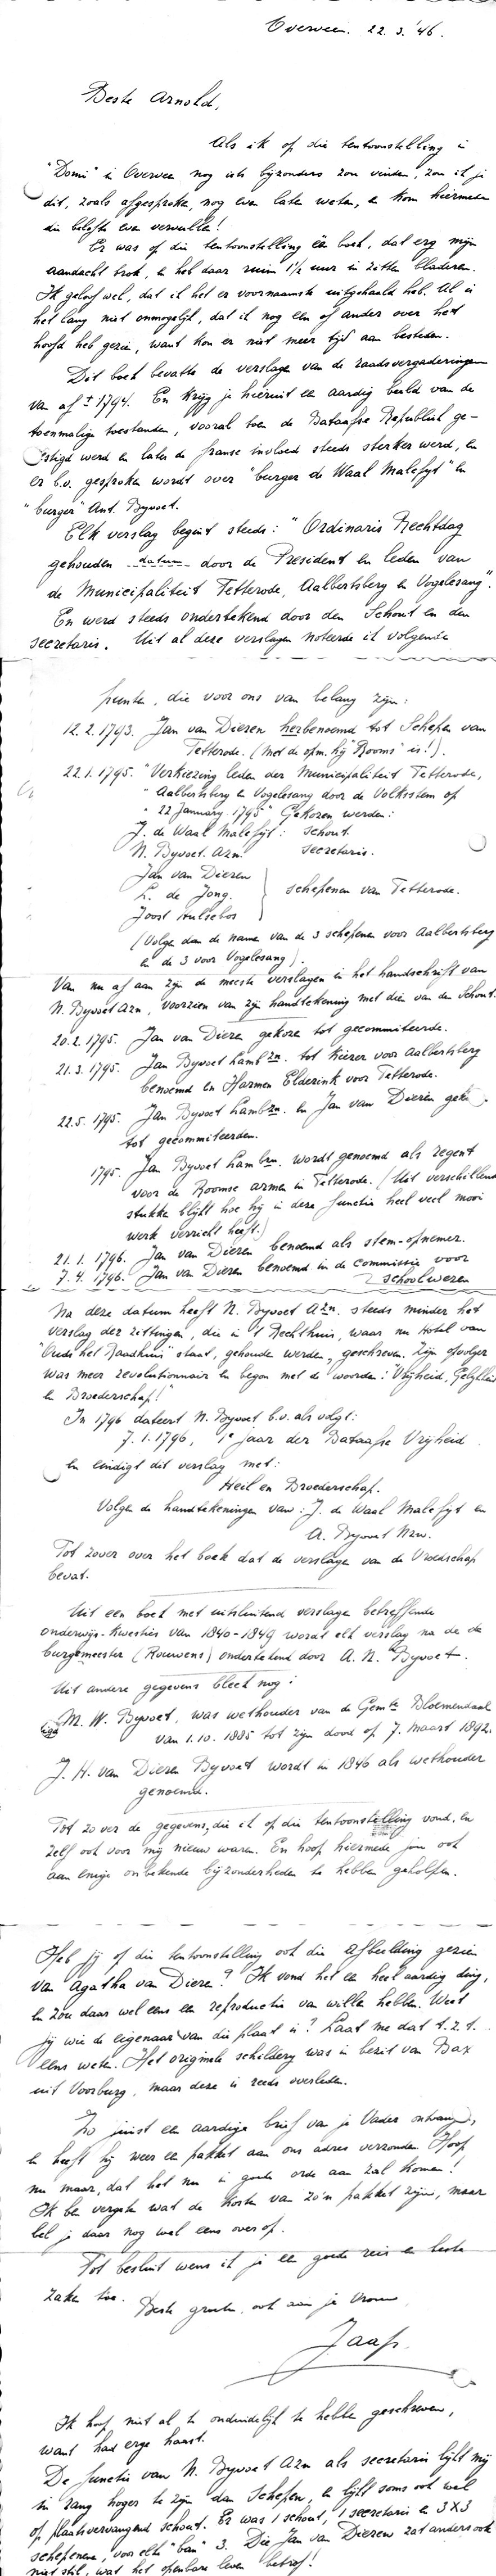 Overveen. 22.3.'46.
Beste Arnold,
Als ik op die tentoonstelling in
"Domi" in Overveen nog iets bijzonders zou vinden, zou ik je
dit, zoals afgesproken, nog even laten weten, en kom hiermede
die belofte even vervullen!
Er was op die tentoonstelling één boek, dat erg mijn
aandacht trok, en heb daar ruim 1½ uur in zitten bladeren.
Ik geloof wel, dat ik het er voornaamste uitgehaald heb. Al is
het lang niet onmogelijk, dat ik nog een of ander over het
hoofd heb gezien, want kon er niet meer tijd aan besteden.
Dit boek bevatte de verslagen van de raadsvergaderingen
van af ± 1794. En krijg je hieruit een aardig beeld van de
toenmalige toestanden, vooral toen de Bataafse Republiek ge-
stigd werd en later de franse invloed steeds sterker werd, en
er b.v. gesproken wordt over "burger de Waal Malefyt" en
"burger" Ant. Byvoet.
Elk verslag begint steeds: "Ordinaris Rechtdag
gehouden datum door de President en leden van
de Municipaliteit Tetterode, Aalbertsberg en Vogelesang".
En werd steeds ondertekend door den Schout en den
secretaris. Uit al deze verslagen noteerde ik volgende
punten, die voor ons van belang zijn:
12.2.1793. Jan van Dieren herbenoemd tot Schepen van
Tetterode. (Met de opm. hij "Rooms" is!).
22.1.1795. "Verkiezing leden der Municipaliteit Tetterode,
" Aalbertsberg en Vogelesang door de Volksstem op
" 22 January 1795" Gekozen werden:
J. de Waal Malefyt: Schout.
N. Byvoet. Azn. secretaris.
Jan van Dieren
L. de Jong. schepenen van Tetterode.
Joost Hulsebos
(Volgen dan de namen van de 3 schepenen voor Aalbertsberg
en de 3 voor Vogelesang).
Van nu af aan zijn de meeste verslagen in het handschrift van
N. Byvoet Azn, voorzien van zijn handtekening met dien van den Schout.
20.2.1795. Jan van Dieren gekozen tot gecommiteerde.
21.3.1795. Jan Byvoet Lambzn. tot kiezer voor Aalbertsberg
benoemd en Harmen Elderink voor Tetterode.
22.5.1795. Jan Byvoet Lambzn. en Jan van Dieren geko
tot gecommiteerden.
1795. Jan Byvoet Lambzn. wordt genoemd als regent
voor de Roomse armen in Tetterode. (Uit verschillende
stukken blijkt hoe hij in deze functie heel veel mooi
werk verricht heeft.)
21.1.1796. Jan van Dieren benoemd als stem-opnemer.
7.4.1796. Jan van Dieren benoemd in de commissie voor
schoolwezen
Na deze datum heeft N. Byvoet Azn. steeds minder het
verslag der zittingen, die in 't Rechthuis, waar nu Hotel van
"Ouds het Raadhuis" staat, gehouden werden, geschreven. Zijn opvolger
was meer revolutionnair en begon met de woorden: "Vrijheid, Gelijkheid
en Broederschap!"
In 1796 dateert N. Byvoet b.v. als volgt:
7.1.1796, 1e Jaar der Bataafse Vrijheid
en eindigt dit verslag met:
Heil en Broederschap.
Volgen de handtekeningen van: J. de Waal Malefyt en
A. Byvoet Nzn.
Tot zover over het boek dat de verslagen van de Vroedschap
bevat.
Uit een boek met uitsluitend verslagen betreffende
onderwijs-kwesties van 1840-1849 wordt elk verslag na de de
burgemeester (Rouwens) ondertekend door A. N. Byvoet.
Uit andere gegevens bleek nog:
M. W. Byvoet, was wethouder van de Gemte Bloemendaal
van 1.10.1885 tot zijn dood op 7. Maart 1892.
J. H. van Dieren Byvoet wordt in 1846 als wethouder
genoemd.
Tot zover de gegevens, die ik op die tentoonstelling vond, en
zelf ook voor mij nieuw waren. En hoop hiermede jou ook
aan enige onbekende bijzonderheden te hebben geholpen.
Heb jij op die tentoonstelling ook die afbeelding gezien
van Agatha van Dieren? Ik vond het een heel aardig ding,
en zou daar wel eens een reproductie van willen hebben. Weet
jij wie de eigenaar van die plaat is? Laat me dat t.z.t.
eens weten. Het originele schildery was in bezit van Bax
uit Voorburg, maar deze is reeds overleden.
Zo juist een aardige brief van je Vader ontvangen,
en heeft hij weer een pakket aan ons adres verzonden. Hoop
nu maar, dat het nu in goede orde aan zal komen!
Ik ben vergeten wat de kosten van zo'n pakket zijn, maar
bel je daar nog wel eens over op.
Tot besluit wens ik je een goede reis en beste
zaken toe. Beste groeten, ook aan je Vrouw
Jaap.
Ik hoop niet al te onduidelijk te hebben geschreven,
want had erge haast.
De functie van N. Byvoet Azn als secretaris lijkt mij
in rang hoger te zijn dan Schepen, en lijkt soms ook wel
op plaatsvervangend schout. Er was 1 schout, 1 secretaris en 3x3
schepenen, voor elke "ban" 3. Die Jan van Dieren zat anders ook
niet stil, wat het openbare leven betrof!